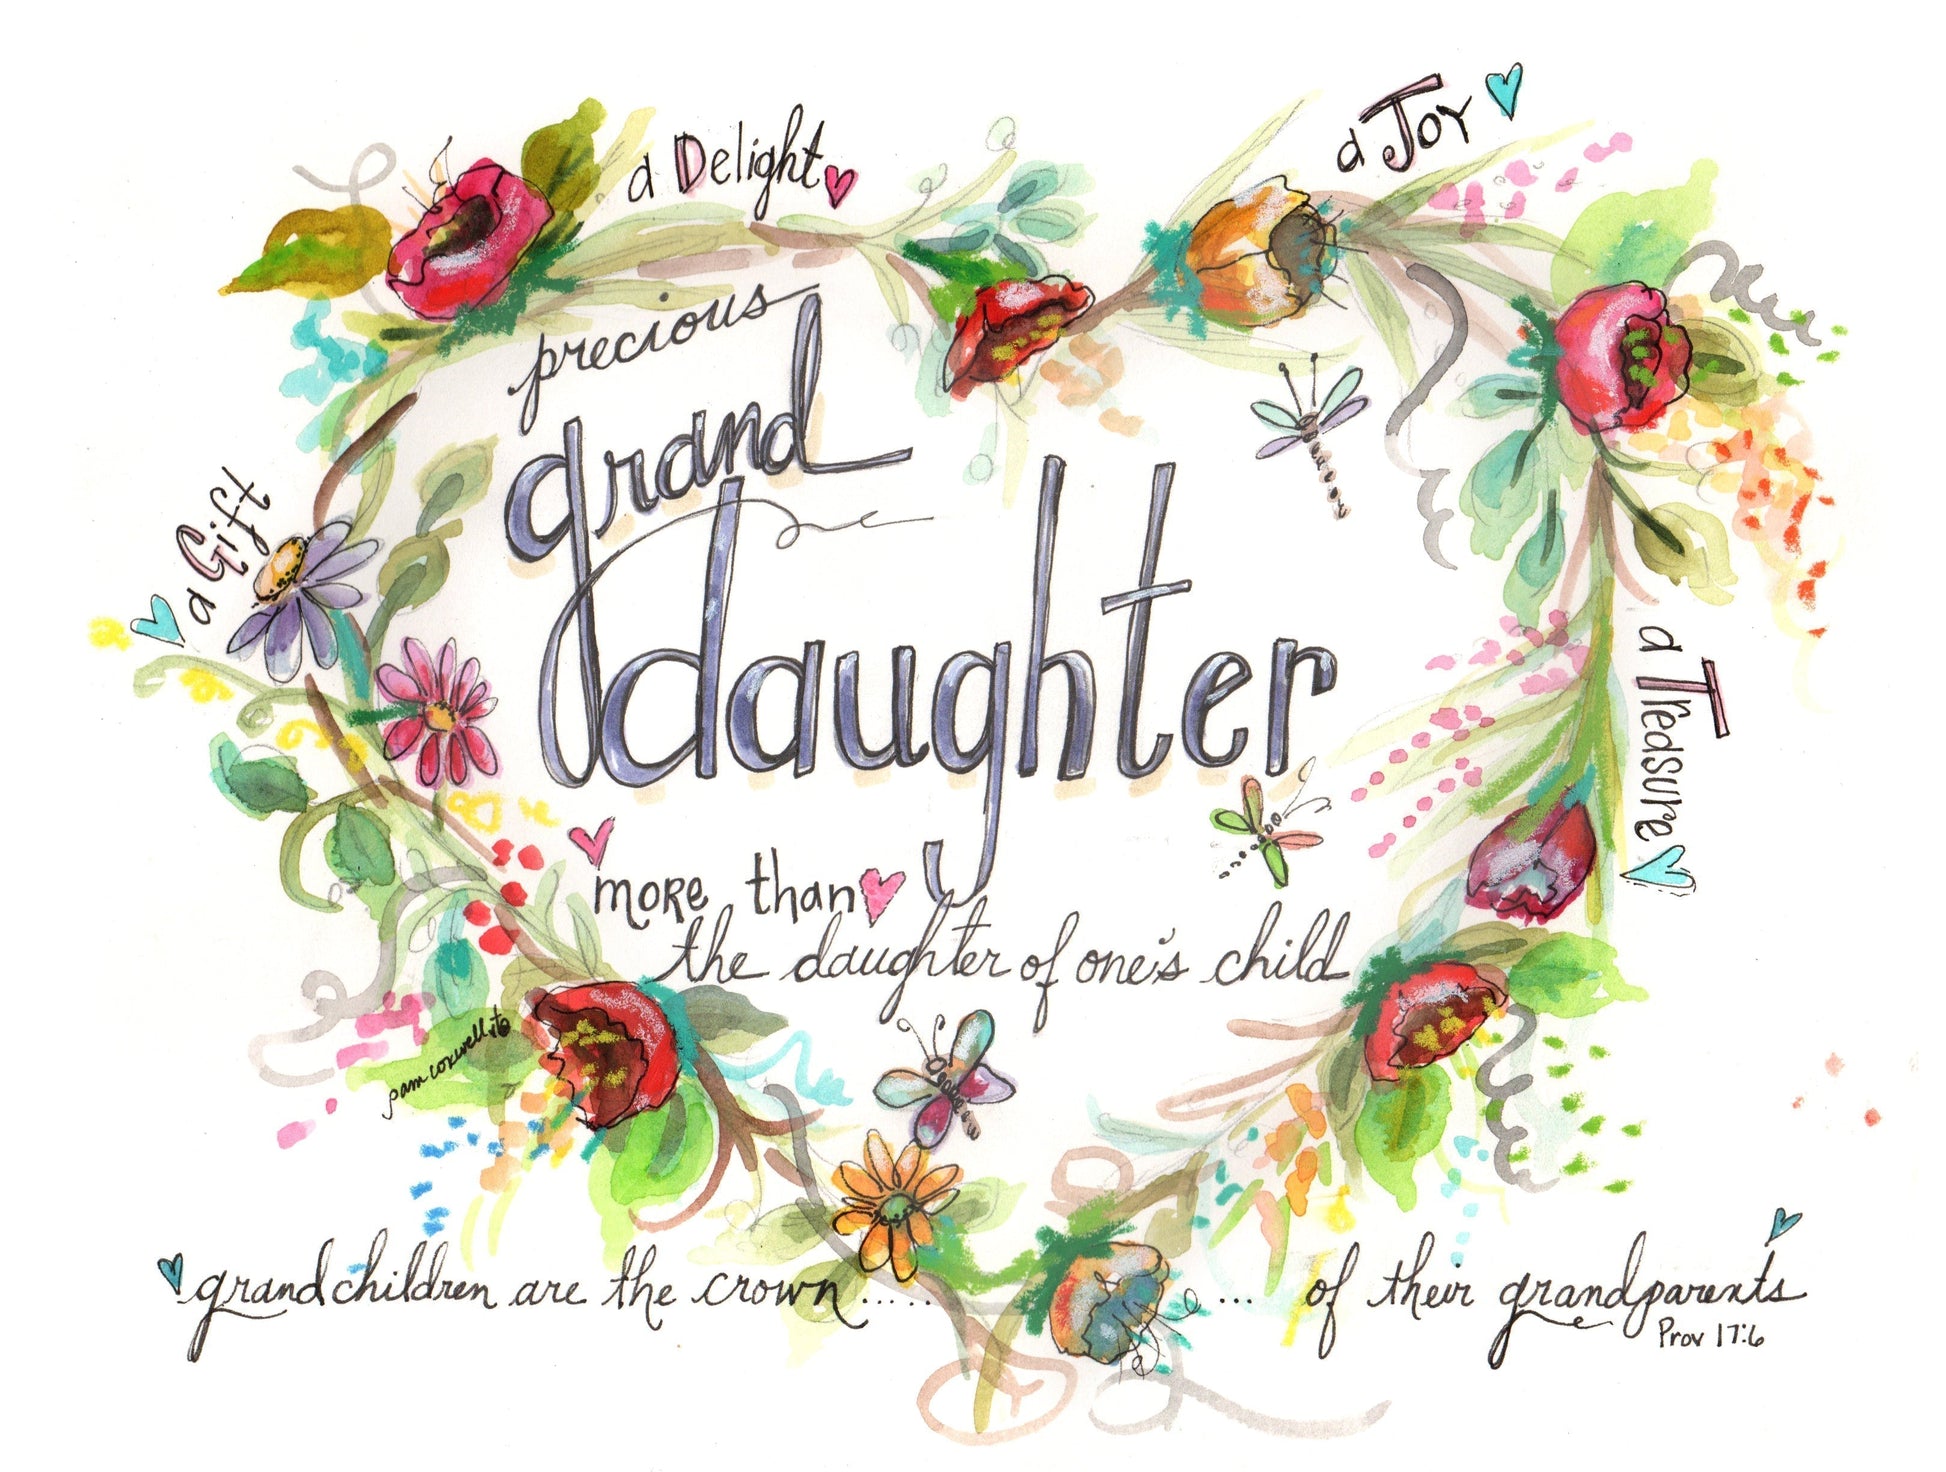 a Delight
a Joy
precious
grand
daughter
a Gift
a Treasure
more than
the daughter of one's child
pam coxwell
grandchildren are the crown..... ... of their grandparents
Prov 17:6